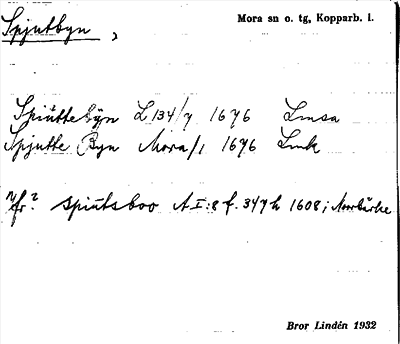 Spjutbyn,
Mora sn o. tg, Kopparb. l.
Spiütte Byn L 134/7 1676 Lmsa
Spjutte Byn Mora/1 1676 Lmk
fr? Spiutsboo A I:8 f. 347 h 1608; Norrbärke
Bror Lindén 1932